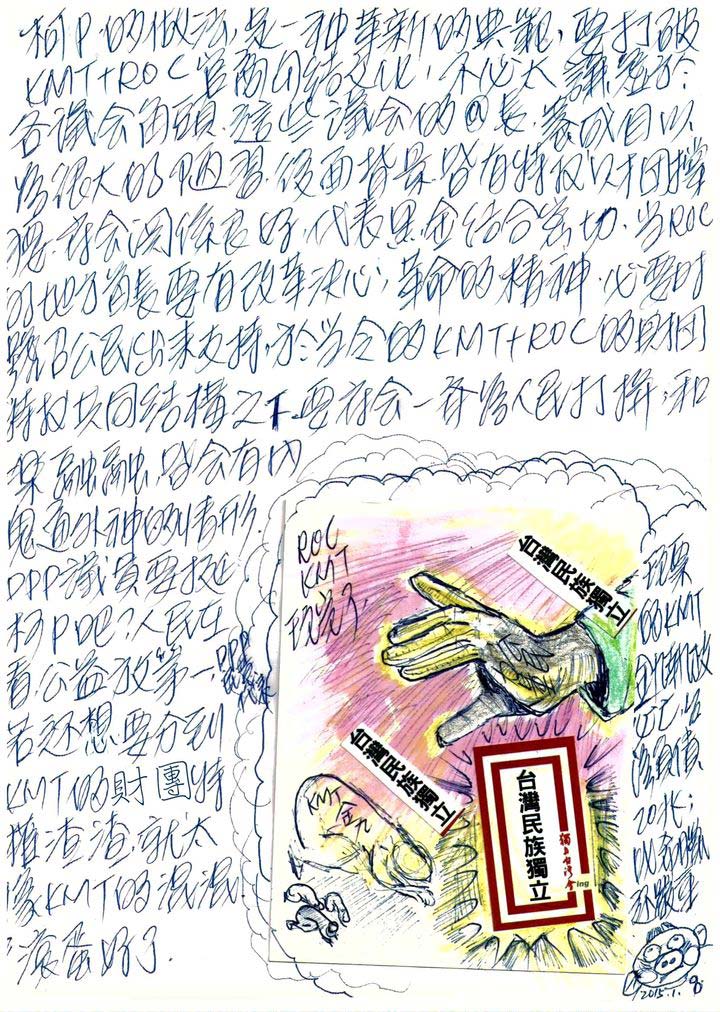 柯P的做法,是一种革新的典範,要打破
KMT+ROC官商勾結文化,不必太謙虛於
各議会角頭.這些議会的@長.養成自以
為很大的陋習.後面背景皆有特权以才团撐
社会関係良好.代表黑金結合密切.当ROC
的地方首長要有改革決心,革命的精神.必要时
號召公民出来支持.於当今的KMT+ROC的財团
特权共同結構之下要社会一斉為人民打拼;和
樂融融.皆会有內
鬼通外神的情形.
DPP議員要挺
柯P吧?人民在
看.公益放第一.
若还想要分到
KMT的財團特
權渣渣就太
像KMT的混混!
滾蛋好了.
DPP
ROC
KMT
玩完了.
台灣民族獨立
台灣民族獨立
台灣民族獨立
獨立台灣會
ing
KMT
玩完
的KMT
負債
20兆;
2015.1.8